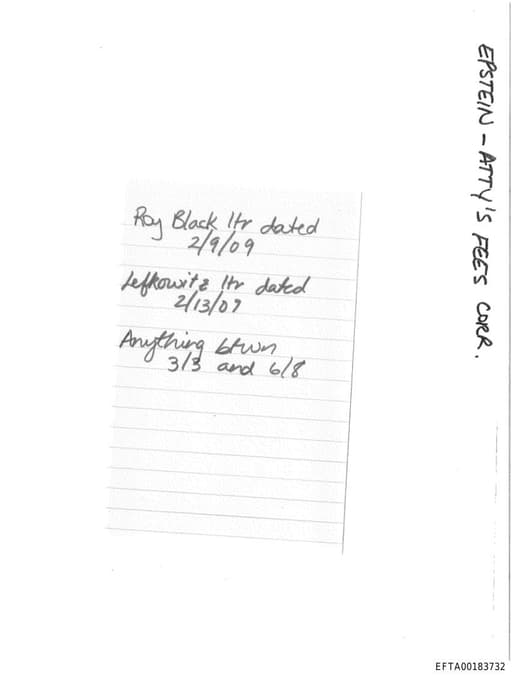 EPSTEIN - ATTY'S FEES CORR.
Roy Black ltr dated
2/9/09
Lefkowitz ltr dated
2/13/09
Anything btwn
3/3 and 6/8
EFTA00183732